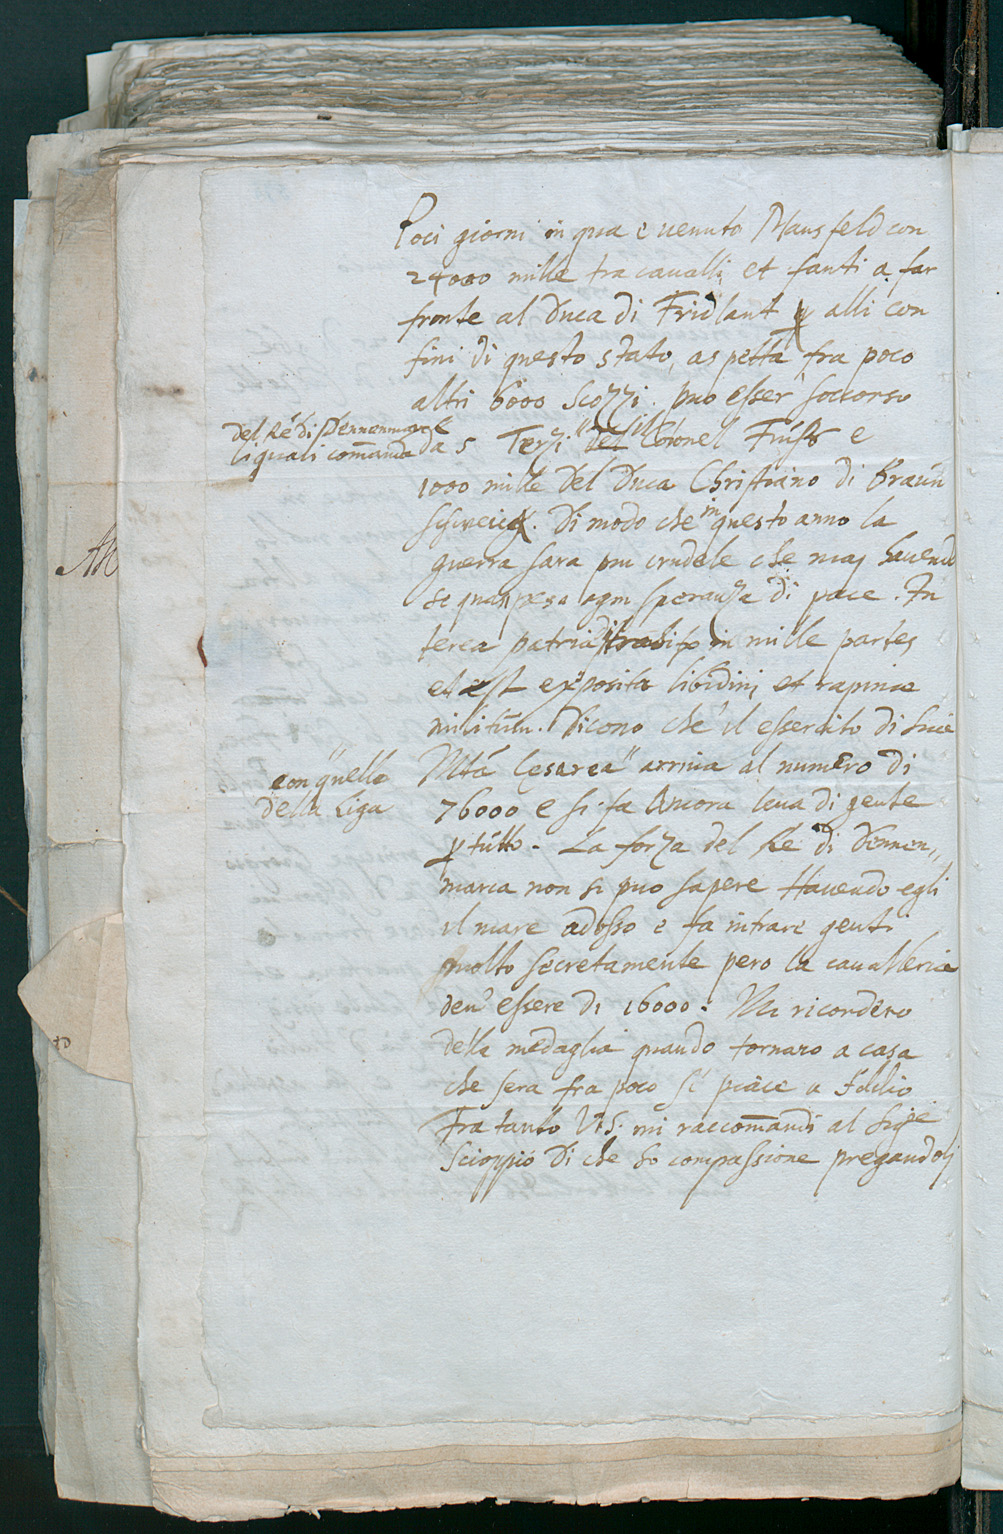 Poci giorni in qua e uenuto Mansfeld con
24000 mille tra caualli et fanti a far
fronte al Duca di Fridlant ꝑ alli con
fini di questo stato, aspetta fra poco
altri 6000 Scozzi. puo esser soccorso
del Ré di Dennemarck
li quali comanda
da 5 Terzi " del il Colonel Fuchs e
1000 mille del Duca Christiano di Braun
schweick. Di modo che in questo anno la
guerra sara piu crudele che maj hauendo
se quasi persa ogni speranza di pace. In
terea patria in mille partes
et est exposita libidini et rapinae
militum. Dicono che il essercito di Sua
Mtá Cesarea " arriua al numero di
con " quello
della Liga
76000 e si fa Ancora leua di gente
ꝑ tutto. La forza del Re di Dennen,,
marca non si puo sapere Hauendo egli
il mare adosso e fa intrare genti
molto secretamente pero la caualleria
deu' essere di 16000. Mi ricordero
della medaglia quando tornaro a casa
che sera fra poco si piace a Iddio
Fra tanto VS. mi raccomandi al Sige
Scioppio di che ho compassione pregandolj